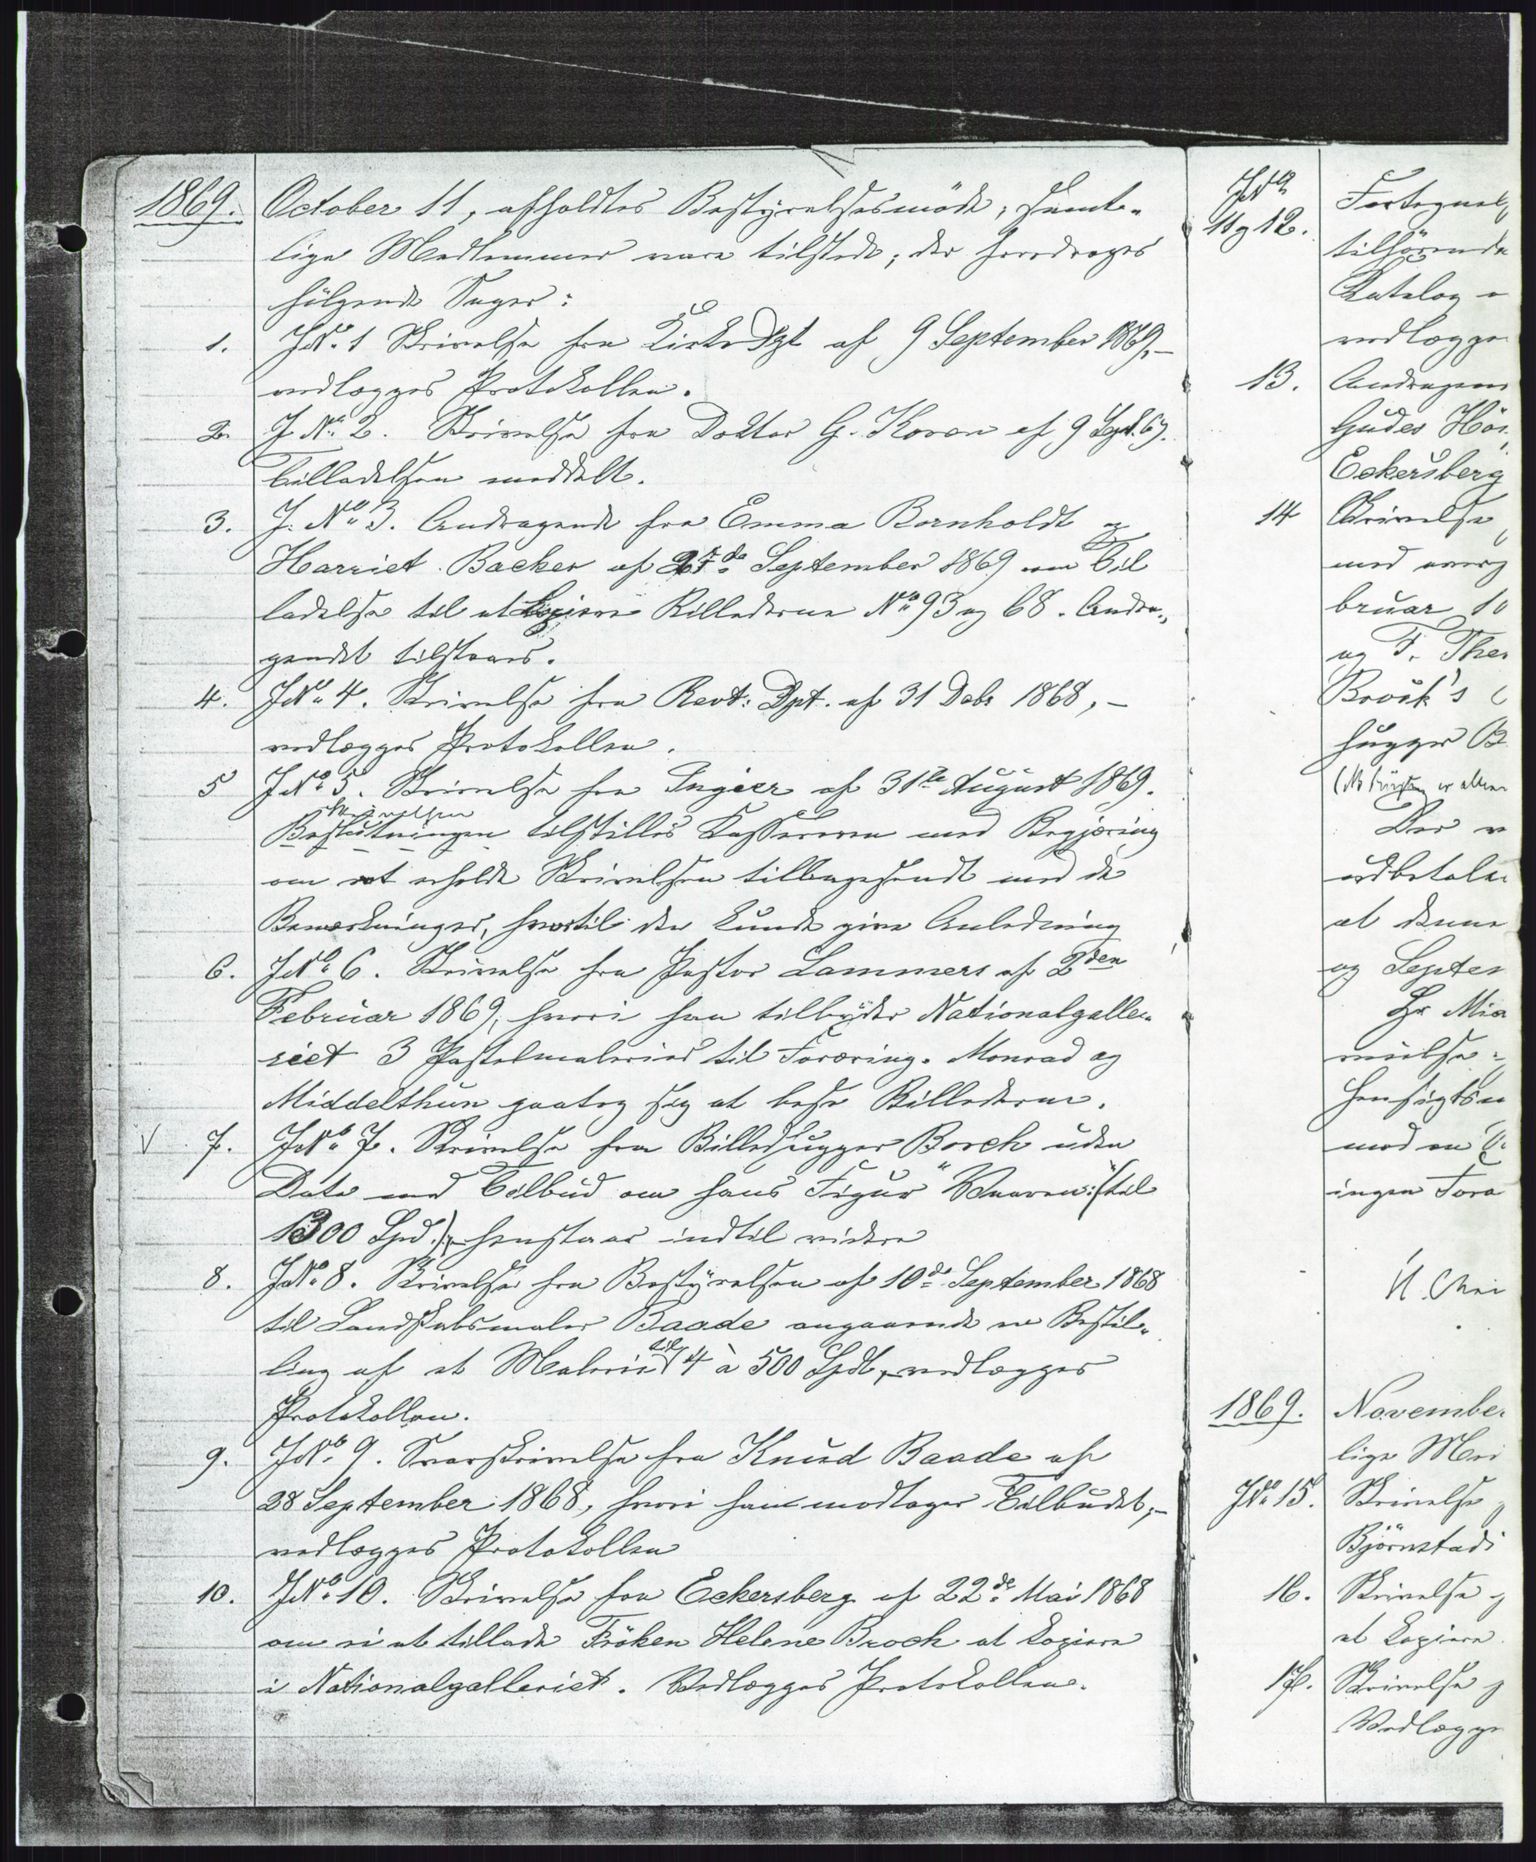 1869. October 11, afholdtes Bestyrelsesmöde; samt-
lige Medlemmer vare tilstede; der foredroges
fölgende Sager:
1. JNo. 1 Skrivelse fra KirkeDpt af 9 September 1869,-
vedlægges Protokollen.
2. J No. 2. Skrivelse fra Doktor G. Koren af 9 Sept. 69.
Tilladelsen meddelt.
3. J. No 3. Andragende fra Emma Bornholdt og
Harriet Backer af 25de September 1869 om Til
ladelse til at kopiere Billederne No 93 og 68. Andra-
gendet tilstaaes.
4. JNo 4. Skrivelse fra Revt: Dpt. af 31 Debr 1868,-
vedlægges Protokollen.
5 JNo 5. Skrivelse fra Ingier af 31te August 1869.
Skrivelsen
Beslutningen tilstilles Kassereren med Begjæring
om at erholde Skrivelsen tilbagesendt med de
Bemærkninger, hvortil den kunde give Anledning
6. JNo 6. Skrivelse fra Pastor Lammers af 2den
Februar 1869, hvori han tilbyder Nationalgalle-
riet 3 Pastelmalerier til Foræring. Monrad og
Middelthun paatog sig at bese Billederne.
V 7. JNo 7. Skrivelse fra Billedhugger Borch uden
Dato med Tilbud om hans Figur "     " (til
1300 Spd.), henstaar indtil videre
8. JNo 8. Skrivelse fra Bestyrelsen af 10de September 1868
til Landskabsmaler Baade angaaende en Bestil-
ling af et Maleri til 4 à 500 Spdl,- vedlægges
Protokollen.
9. JNo 9. Svarskrivelse fra Knud Baade af
28 September 1868, hvori han modtager Tilbudet,-
vedlægges Protokollen
10. JNo 10. Skrivelse fra Eckersberg af 22de Mai 1868
om at tillade Fröken Helene Broch at kopiere
i Nationalgalleriet. Vedlægges Protokollen.
JNo
11 og 12. Fortegnel
tilhörende
Katalog
vedlægge
13. Andragen
Gudes
Eckersberg
14 Skrivelse
med
bruar
og F. Ther
hugger B
Der
udbetale
at denne
og Septem
Hr
hensigtsm
mod en
ingen Fora
1869. November
lige Med
JNo 15. Skrivelse
Björnstad
16. Skrivelse
at kopiere
17. Skrivelse
Vedlægge